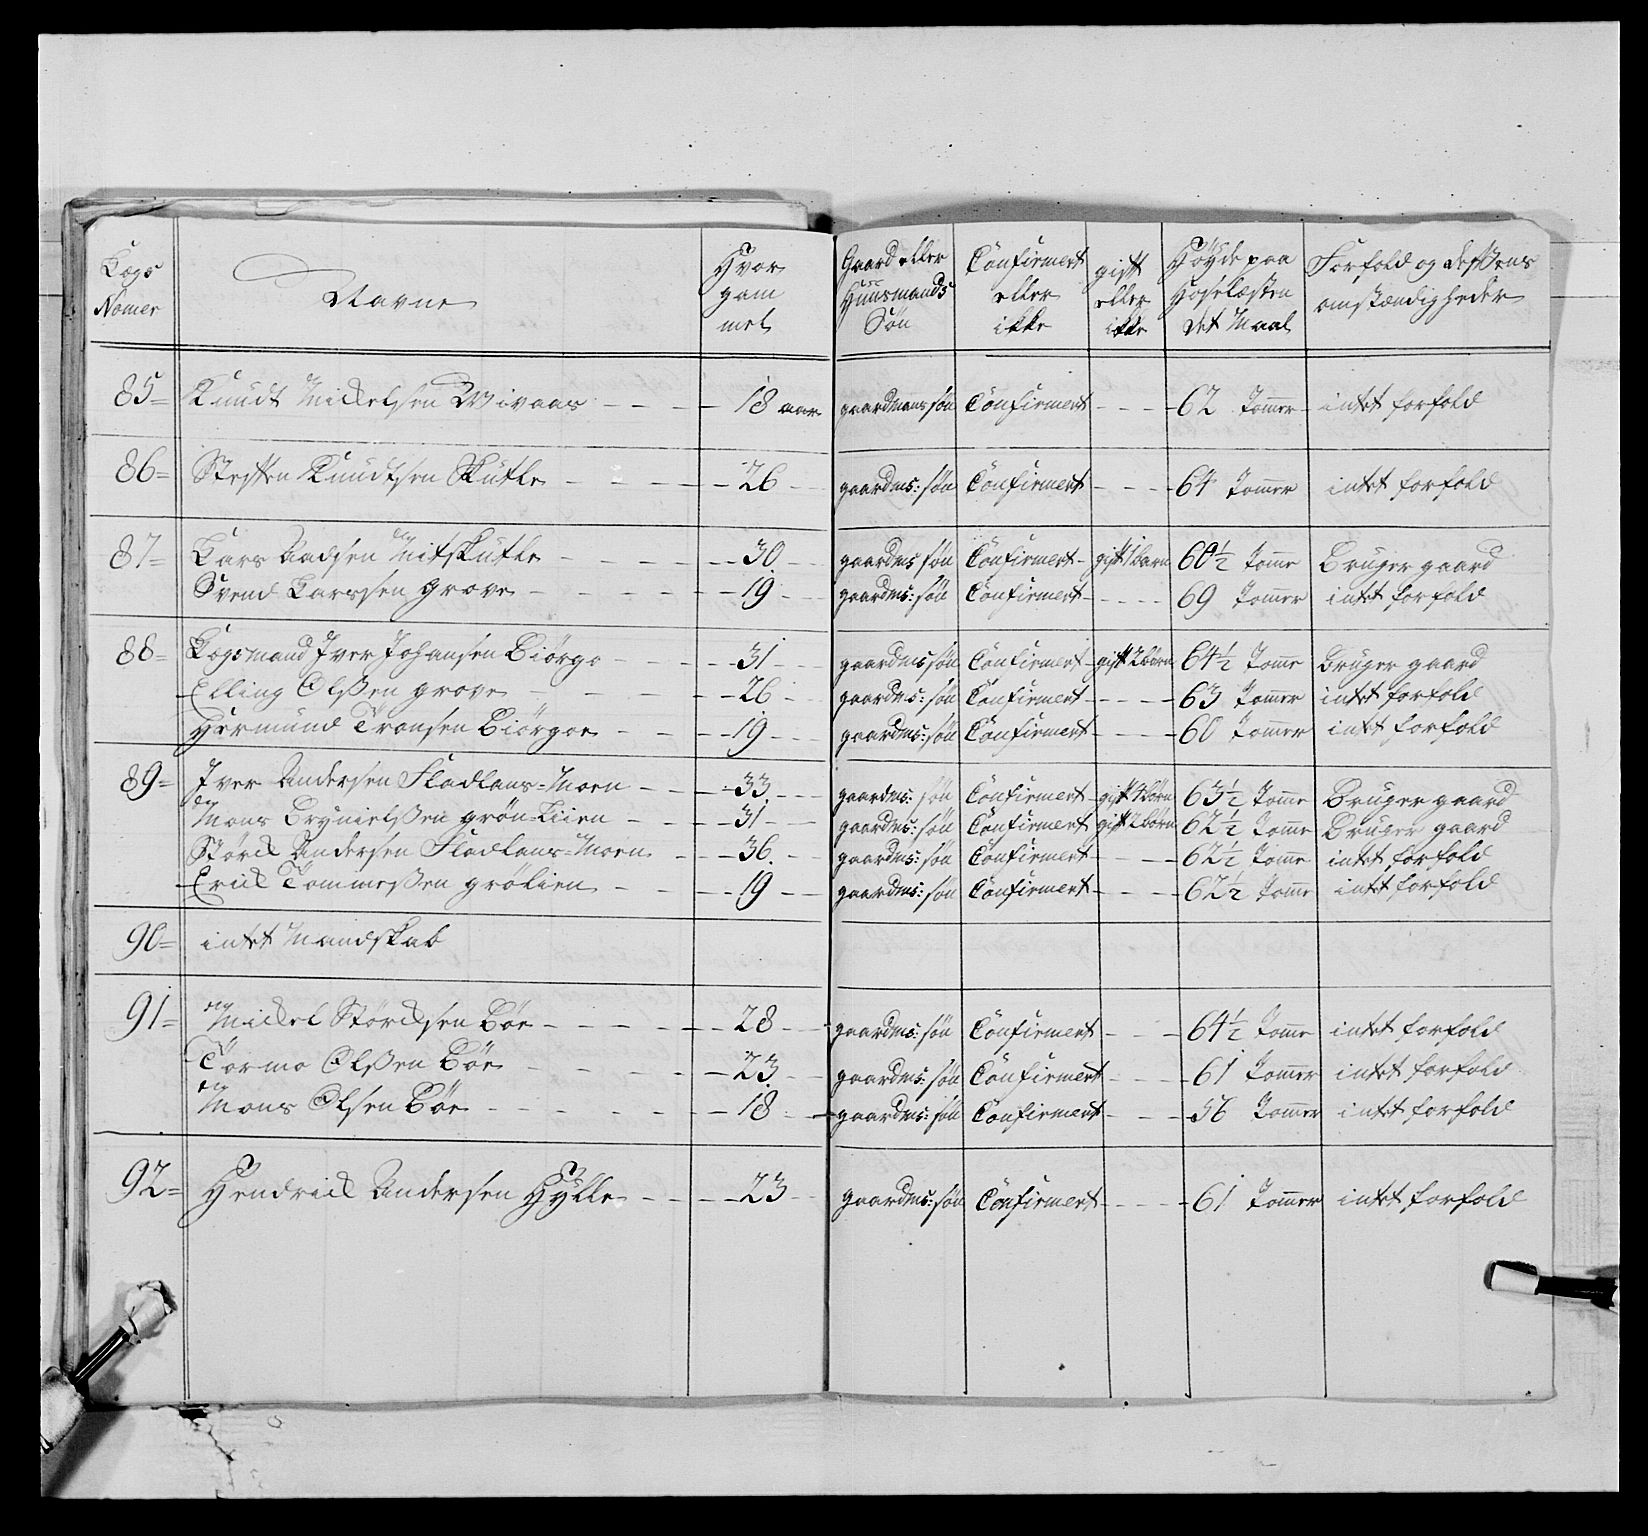 Lægs Nomer | Navne | Hvor gam mel | Gaard eller Huusmands Søn | Confirmert eller ikke | gift eller ikke | Høyde paa Hoselæsten det Maal | Forfold og dessens omstændigheder
85= Knudt Mickelsen Wivaas - - - 18 aar gaardmans søn Confirmert - - - 62 Tomer - intet forfold
86= Steffen Knudtsen Skutle - - - 26 gaardms: søn Confirmert - - - 64 Tomer intet forfold
87= Lars Aadsen Mitskutle - - - 30 gaardms søn Confirmert - gift 1 barn 60½ Tomme Bruger gaard
Svend Larssen grove - - - 19 gaardms: søn Confirmert - - - 69 Tomer intet forfold
88= Lægsmand Iver Johansen Biørgo - - - 31 gaardms søn Confirmert - gift 2 børn 64½ Tomme bruger gaard
Elling Olssen grove - - - 26 gaardms: søn Confirmert - - - 63 Tomer intet forfold
Hermund Tronsen Biørgoe - - - 19 gaardms: søn Confirmert - - - 60 Tomer intet forfold
89= Iver Andersen Fladlans=Moen - - - 33 gaardms: søn Confirmert - gift 4 børn 63½ Tomme Bruger gaard
Mons Brynielssen grøn=Liien - - - 31 gaardms: søn Confirmert gift 2 børn 62½ Tomme Bruger gaard
Størck Andersen Fladlans=Moen - - 36 gaardms: søn Confirmert - - - 62½ Tomme intet forfold
Erick Tommessen grølien - - - 19 gaardms: søn Confirmert - - - 62½ Tomme intet forfold
90= intet Mandskab
91= Mickel Størcksen Bøe - - - 28 gaardms: søn Confirmert - - - 64½ Tome intet forfold
Tormo Olssen Bøe - - - 23 gaardms: søn Confirmert - - - 61 Tomer intet forfold
Mons Olsen Bøe - - - 18 gaardms: søn Confirmert - - - 56 Tomer intet forfold
92= Hendrick Andersen Hylle - - - 23 gaardms: søn Confirmert - - - 61 Tomer intet forfold